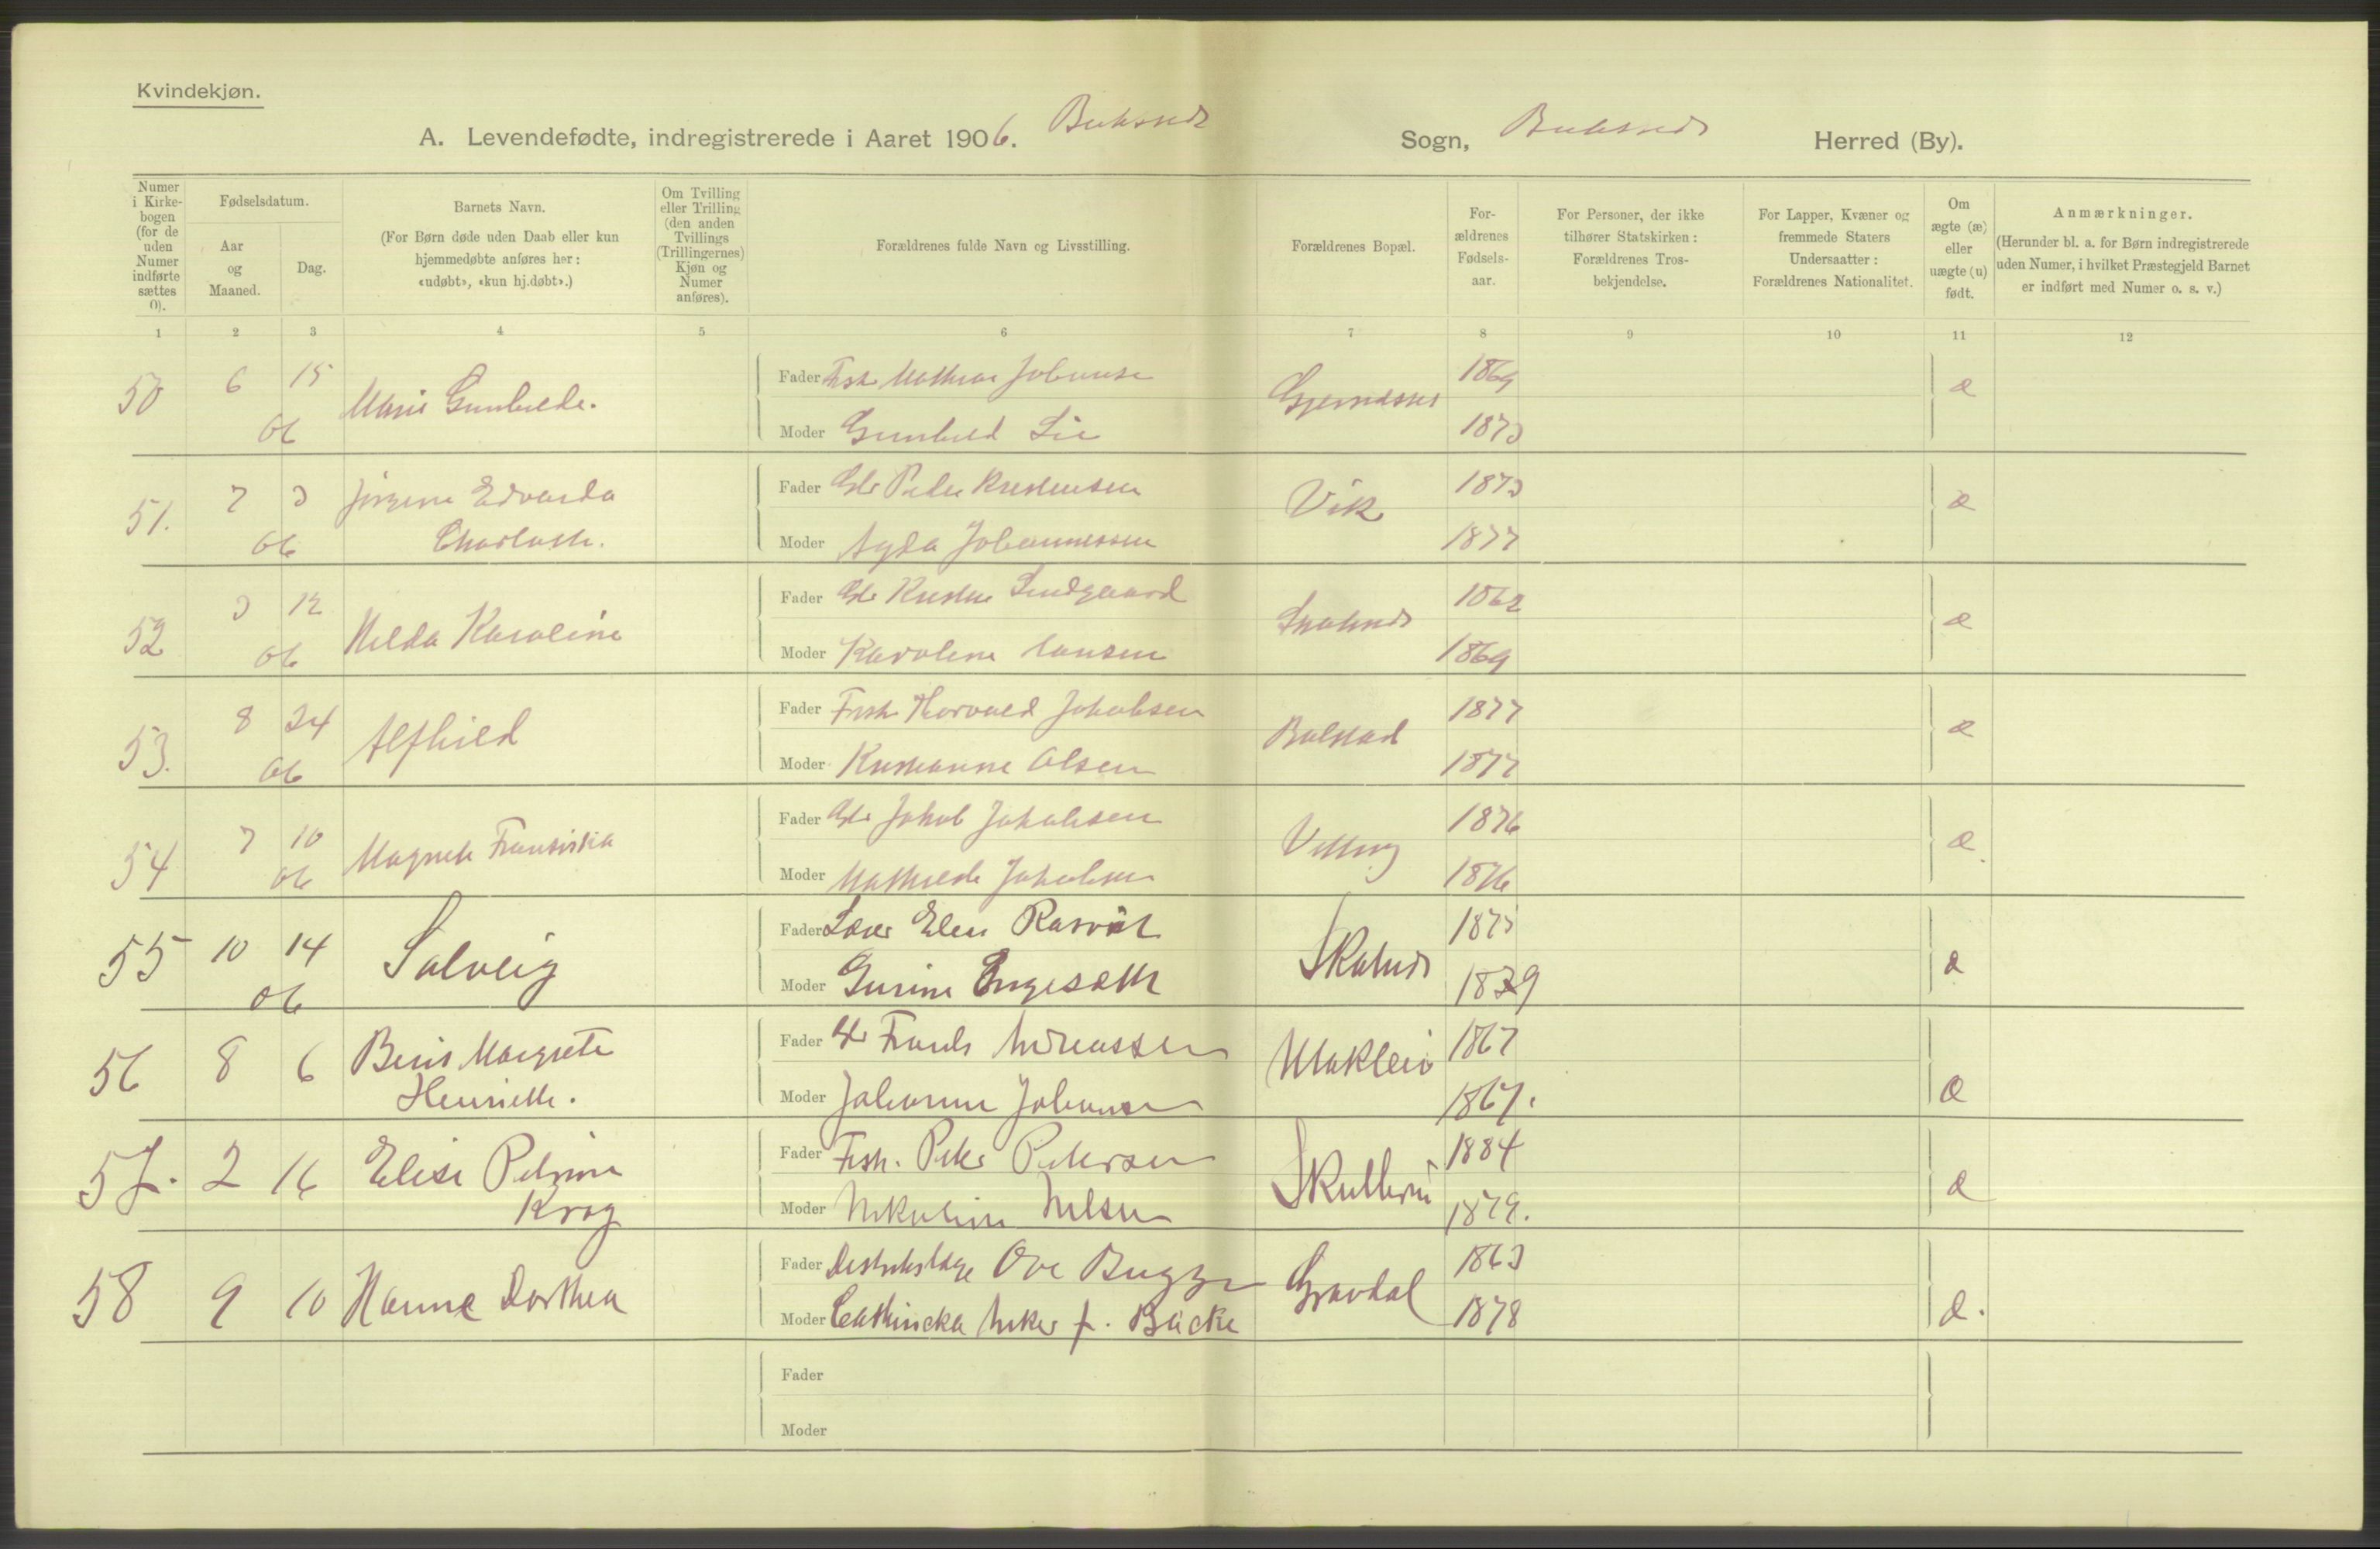 Kvindekjøn.
A. Levendefødte, indregistrerede i Aaret 1906. Buksnes Sogn, Buksnes Herred (By).
Numer i Kirkebogen (for de uden Numer indførte sættes 0).
Fødselsdatum.
Aar og Maaned.
Dag.
Barnets Navn.
(For Børn døde uden Daab eller kun hjemmedøbte anføres her: «udøbt», «kun hj.døbt».)
Om Tvilling eller Trilling (den anden Tvillings (Trillingernes) Kjøn og Numer anføres).
Forældrenes fulde Navn og Livsstilling.
Forældrenes Bopæl.
Forældrenes Fødselsaar.
For Personer, der ikke tilhører Statskirken: Forældrenes Trosbekjendelse.
For Lapper, Kvæner og fremmede Staters Undersaatter: Forældrenes Nationalitet.
Om ægte (æ) eller uægte (u) født.
Anmærkninger.
(Herunder bl. a. for Børn indregistrerede uden Numer, i hvilket Præstegjeld Barnet er indført med Numer o. s. v.)
1 2 3 4 5 6 7 8 9 10 11 12
50 6 15 06 Marie Gunhilde.
Fader Fisk Mathias Johansen 1869 æ
Moder Gunhild Lie 1873
51. 7 3 06 Jørgine Edvarda
Charlotte.
Fader Gbr Peder Kristensen Vik 1873 æ
Moder Agda Johannessen 1877
52 3 12 06 Hilda Karoline
Fader Gbr Lindgaard 1862 æ
Moder Karoline Hansen 1869
53. 8 24 06 Alfhild
Fader Fisk Thorvald Jakobsen Balstad 1877 æ
Moder Kristianne Olsen 1877
54 7 10 06 Magnete Fransiska
Fader Gbr Jakob Jakobsen 1876 æ.
Moder Mathilde Jakobsen 1876
55 10 14 06 Solveig
Fader Lærer Elias Rasvik 1875 æ
Moder Gurine Engesæth 1879
56 8 6 Beris Margrete
Henriette.
Fader Gbr Frants Andreassen Maklei 1867 æ
Moder Johanna Johansen 1867.
57. 2 16 Elise Petrine
Krog
Fader Fisk. Peter Petersen 1884 æ
Moder Nikoline Nilsen 1879.
58 9 10 Hanna Dorthea
Fader Distriktslæge Ove Bugge Gravdal 1863 æ.
Moder Cathincka Anker f. Backe 1878
Fader
Moder